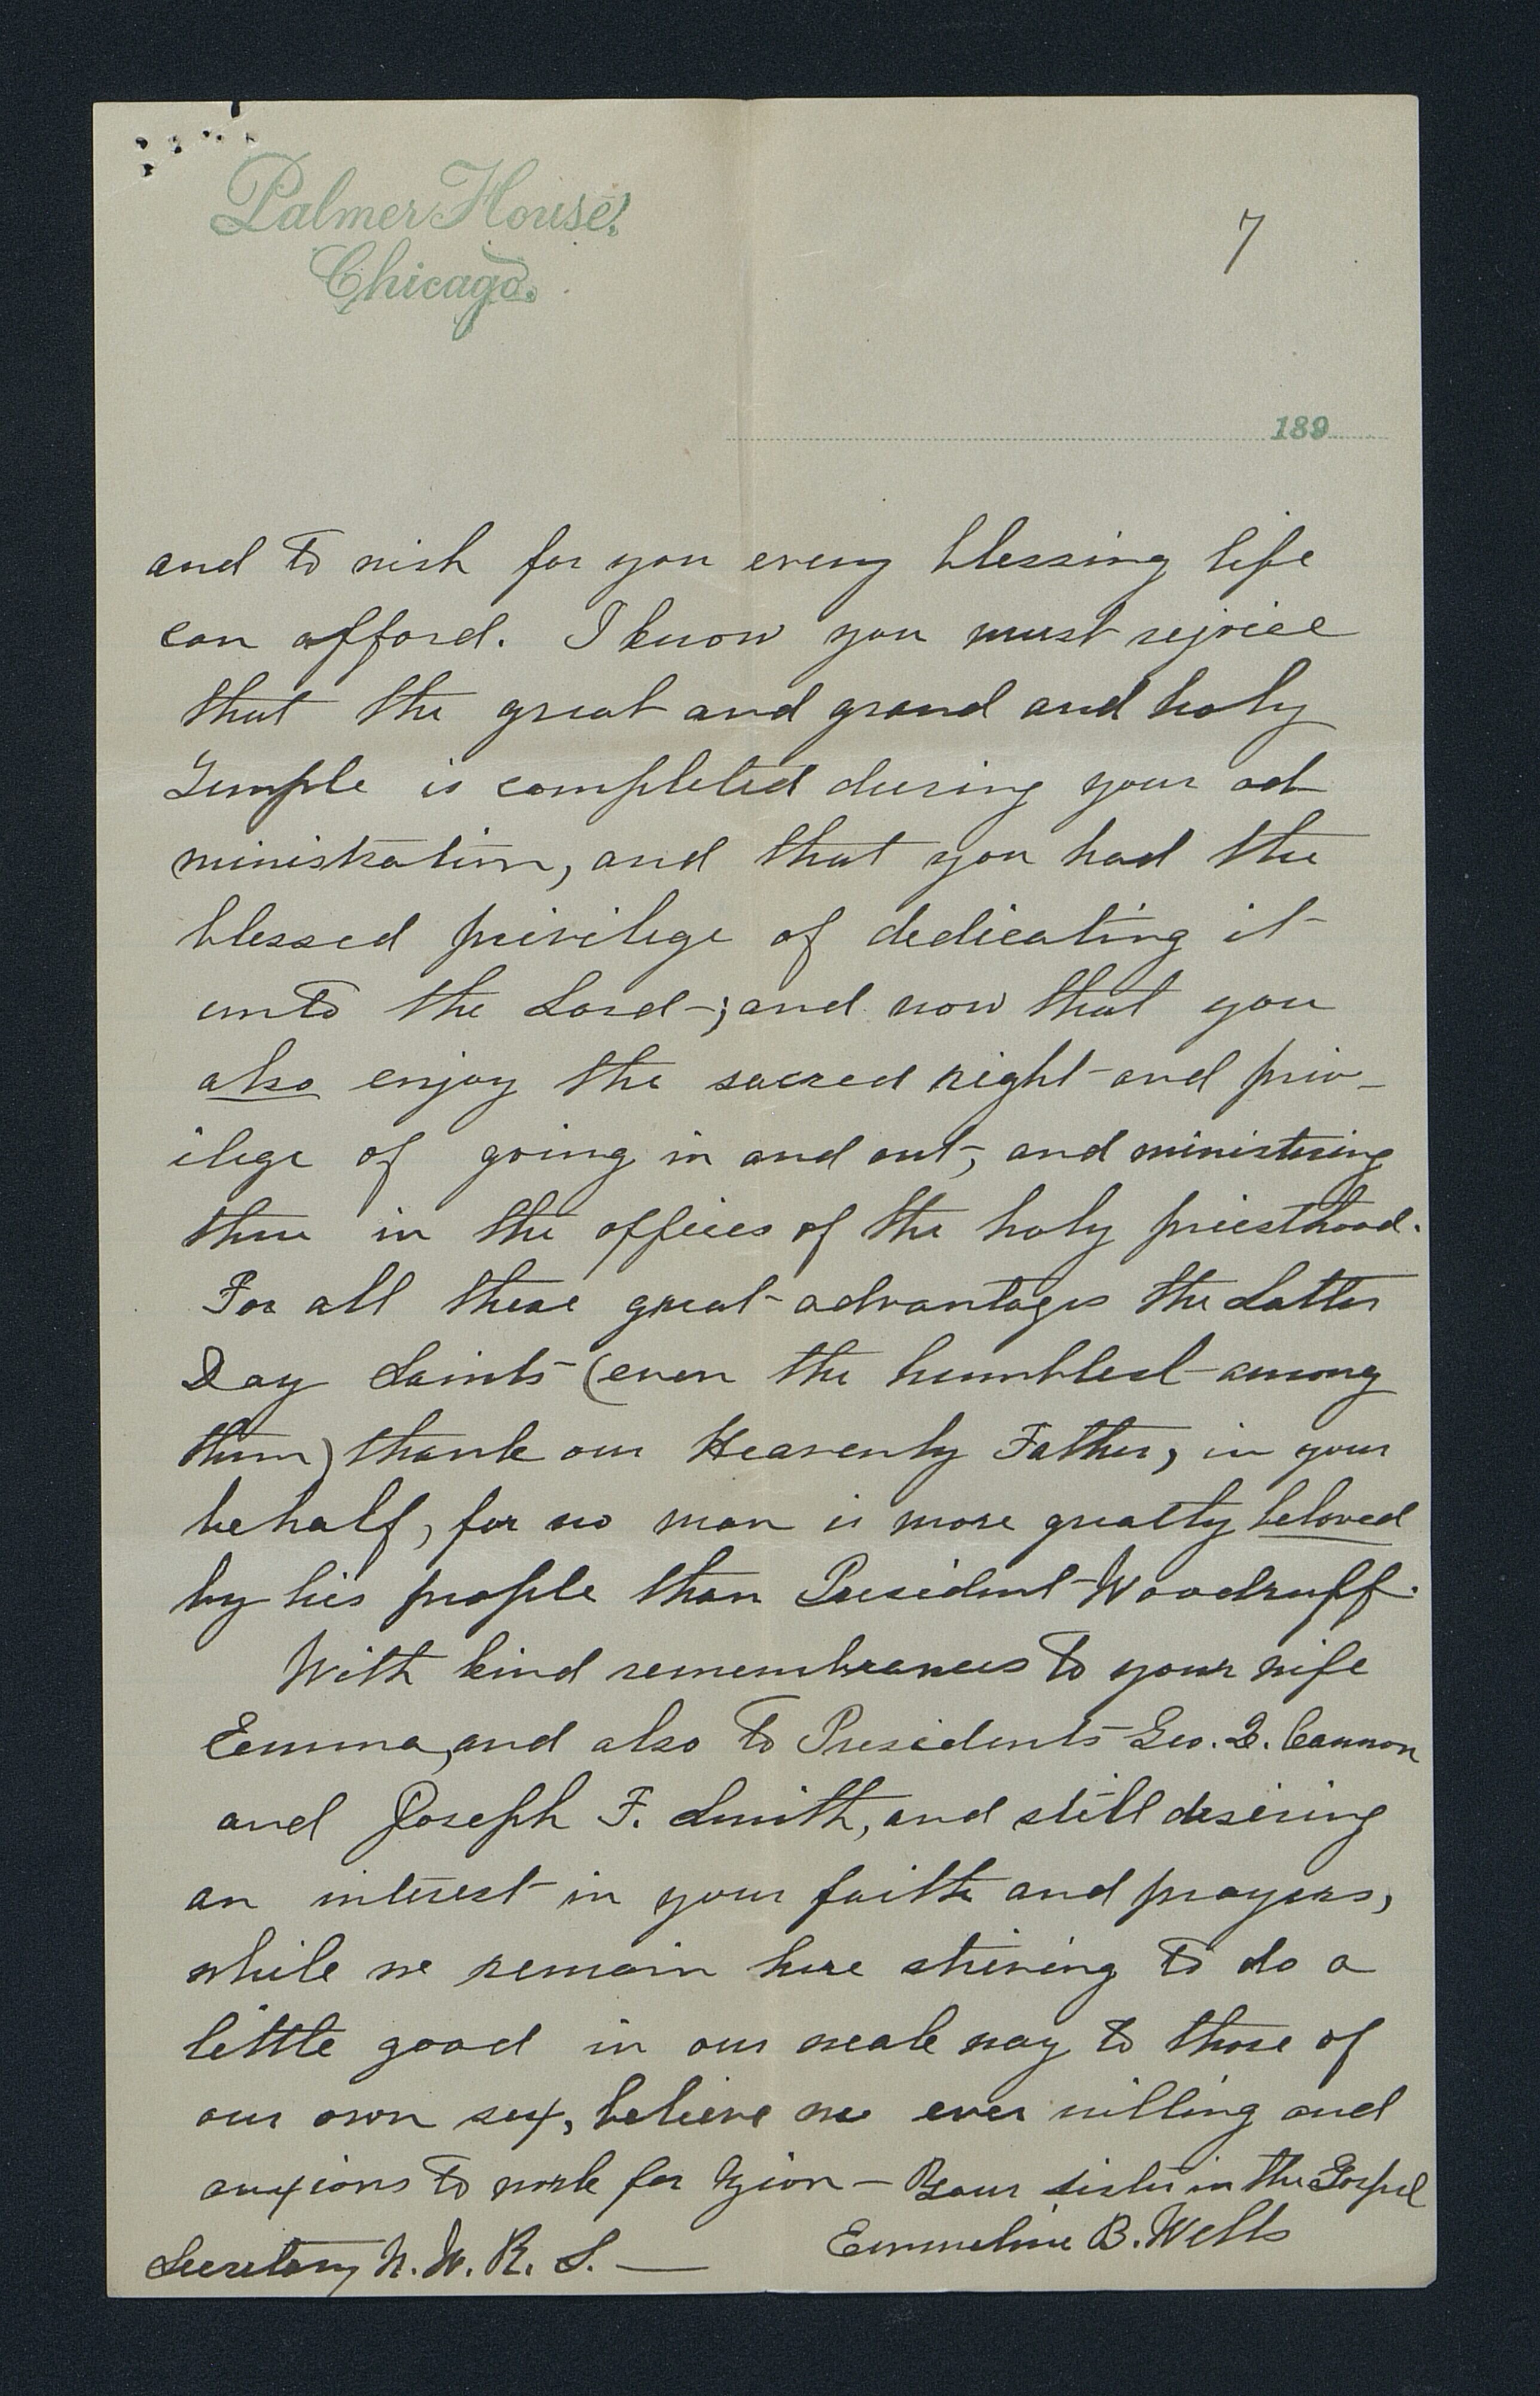 Palmer House,
Chicago.
7
189
and to wish for you every blessing life
can afford. I know you must rejoice
that the great and grand and holy
Temple is completed during your ad
ministration, and that you had the
blessed privilege of dedicating it
unto the Lord-; and now that you
also enjoy the sacred right and priv-
ilege of going in and out, and ministering
there in the offices of the holy priesthood.
For all these great advantages the Latter
Day Saints (even the humblest among
them) thank our Heavenly Father, in your
behalf, for no man is more greatly beloved
by his people than President Woodruff.
With kind remembrances to your wife
Emma, and also to Presidents Geo. Q. Cannon
and Joseph F. Smith, and still desiring
an interest in your faith and prayers,
while we remain here striving to do a
little good in our weak way to those of
our own sex, believe me ever willing and
anxious to work for Zion — Your sister in the Gospel
Emmeline B. Wells
Secretary N. W. R. S. —